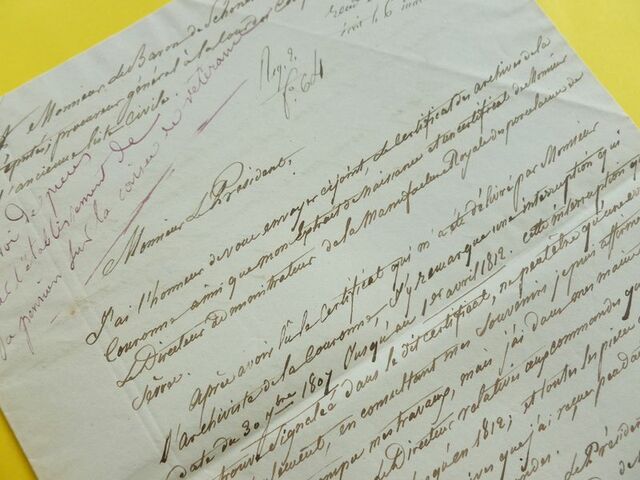 A Monsieur le Baron de Schonen
députés, procureur général à la Cour des
l'ancienne liste civile.
Reg. 2.
f.° 64
écrit le 6
de pièces
l'établissement de
sa pension sur la caisse de vétérance
Monsieur le Président,
J'ai l'honneur de vous envoyer ci-joint, le Certificat des archives de la
Couronne ainsi que mon extrait de Naissance et un certificat de Monsieur
le Directeur administrateur de la Manufacture Royale des porcelaines de
Sèvres.
Après avoir lu le Certificat qui m'a été délivré par Monsieur
l'archiviste de la Couronne, j'y remarque une interruption qui
date du 30 7bre 1807 jusqu'au 1er avril 1812. cette interruption
trouve signalée dans le dit certificat, ne peut être qu'une
en consultant mes souvenirs je puis affirmer
mes travaux, mais j'ai dans mes mains
le Directeur relatives aux commandes que
jusqu'en 1812; et toutes les pièces
que j'ai reçues pendant
le Président